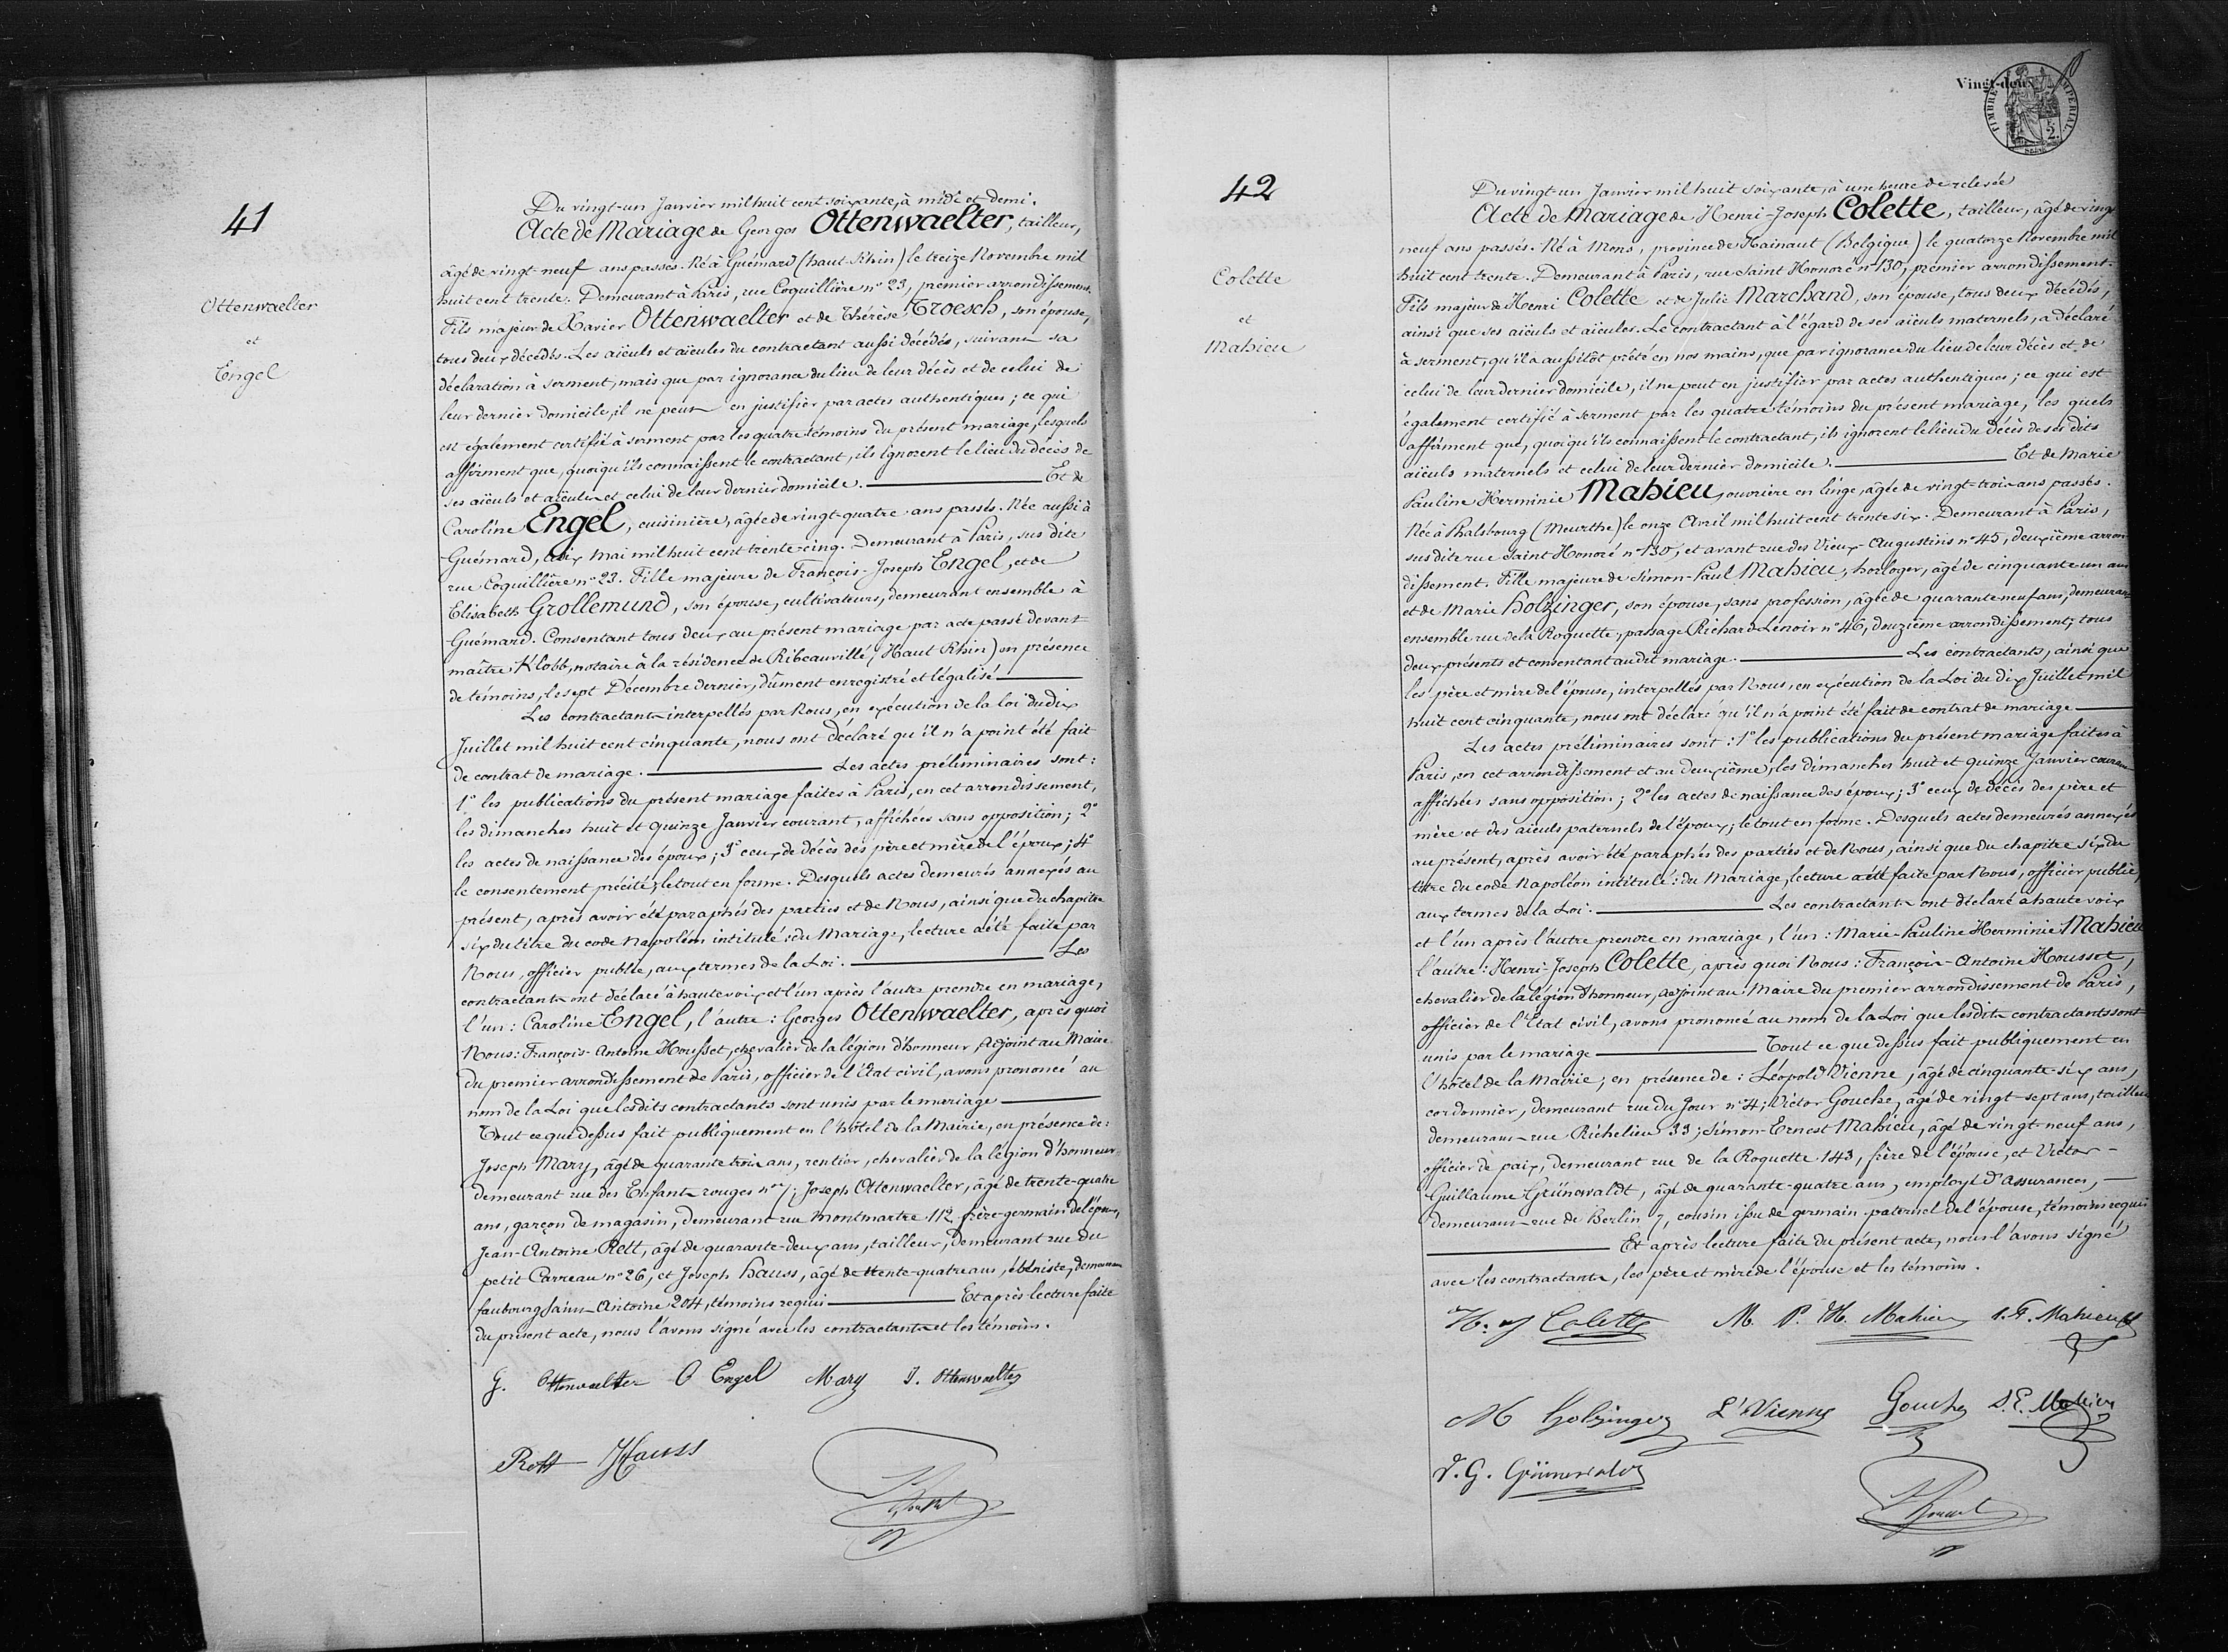 41
Ottenwaelter
et
Engel
Du vingt-un Janvier mil huit cent soixante, à midi et demi.
Acte de Mariage de Georges Ottenwaelter, tailleur,
âgé de vingt-neuf ans passés. Né à Guémard (haut-Rhin) le treize Novembre mil
huit cent trente. Demeurant à Paris, rue Coquillière n° 23, premier arrondissement.
Fils majeur de Xavier Ottenwaelter et de Thérèse Troesch, son épouse,
tous deux décédés. Les aïeuls et aïeules du contractant aussi décédés, suivant sa
déclaration à serment, mais que par ignorance du lieu de leur décès et de celui de
leur dernier domicile, il ne peut en justifier par actes authentiques; ce qui
est également certifié à serment par les quatre témoins du présent mariage, lesquels
affirment que, quoiqu'ils connaissent le contractant, ils ignorent le lieu du décès de
ses aïeuls et aïeules et celui de leur dernier domicile. Et de
Caroline Engel, cuisinière, âgée de vingt-quatre ans passés. Née aussi à
Guémard, le dix Mai mil huit cent trente-cinq. Demeurant à Paris, sus dite
rue Coquillière n° 23. Fille majeure de François-Joseph Engel, et de
Elisabeth Grollemund, son épouse, cultivateurs, demeurant ensemble à
Guémard. Consentant tous deux au présent mariage par acte passé devant
maître Klobb, notaire à la résidence de Ribeauvillé, (Haut Rhin) en présence
de témoins, le sept Décembre dernier, dûment enregistré et légalisé
Les contractants interpellés par Nous, en exécution de la loi du dix
Juillet mil huit cent cinquante, nous ont déclaré qu'il n'a point été fait
de contrat de mariage. Les actes préliminaires sont:
1° les publications du présent mariage faites à Paris, en cet arrondissement,
les dimanches huit et quinze Janvier courant, affichées sans opposition; 2°
les actes de naissance des époux; 3° ceux de décès des père et mère de l'époux; 4°
le consentement précité; le tout en forme. Desquels actes demeurés annexés au
présent, après avoir été paraphés des parties et de Nous, ainsi que du chapitre
six du titre du code Napoléon intitulé: du Mariage, lecture a été faite par
Nous, officier public, aux termes de la Loi. Les
contractants ont déclaré à haute voix et l'un après l'autre prendre en mariage,
l'un: Caroline Engel, l'autre: Georges Ottenwaelter, après quoi
Nous: François-Antoine Housset, chevalier de la légion d'honneur, Adjoint au Maire
du premier arrondissement de Paris, officier de l'Etat civil, avons prononcé au
nom de la Loi que lesdits contractants sont unis par le mariage
Tout ce que dessus fait publiquement en l'hôtel de la Mairie, en présence de:
Joseph Mary, âgé de quarante-trois ans, rentier, chevalier de la légion d'honneur
demeurant rue des Enfants rouges n° 7; Joseph Ottenwaelter, âgé de trente-quatre
ans, garçon de magasin, demeurant rue Montmartre 112, frère germain de l'époux,
Jean-Antoine Rett, âgé de quarante-deux ans, tailleur, demeurant rue du
petit-Carreau n° 26, et Joseph Hauss, âgé de trente-quatre ans, ébéniste, demeurant
faubourg Saint-Antoine 204, témoins requis Et après lecture faite
du présent acte, nous l'avons signé avec les contractants et les témoins.
G. Ottenwaelter C Engel Mary J. Ottenwaelter
Rott Hauss
Housset
Vingt-deux
TIMBRE IMPERIAL
42
Colette
et
Mahieu
Du vingt-un Janvier mil huit soixante, à une heure de relevée
Acte de Mariage de Henri-Joseph Colette, tailleur, âgé de vingt
neuf ans passés. Né à Mons, province de Hainaut (Belgique) le quatorze Novembre mil
huit cent trente. Demeurant à Paris, rue Saint Honoré n° 130, premier arrondissement.
Fils majeur de Henri Colette et de Julie Marchand, son épouse, tous deux décédés,
ainsi que ses aïeuls et aïeules. Le contractant à l'égard de ses aïeuls maternels, a déclaré
à serment, qu'il a aussitôt prêté en nos mains, que par ignorance du lieu de leur décès et de
celui de leur dernier domicile, il ne peut en justifier par actes authentiques; ce qui est
également certifié à serment par les quatre témoins du présent mariage, les quels
affirment que, quoiqu'ils connaissent le contractant, ils ignorent le lieu du décès de ses dits
aïeuls maternels et celui de leur dernier domicile. Et de Marie
Pauline Herminie Mahieu, ouvrière en linge, âgée de vingt-trois ans passés.
Née à Phalsbourg (Meurthe) le onze Avril mil huit cent trente six. Demeurant à Paris,
sus dite rue Saint Honoré n° 130, et avant rue des Vieux-Augustins n° 45, deuxième arron
dissement. Fille majeure de Simon-Paul Mahieu, horloger, âgé de cinquante un ans
et de Marie Holzinger, son épouse, sans profession, âgée de quarante neuf ans, demeurant
ensemble rue de la Roquette, passage Richard-Lenoir n° 46, douzième arrondissement; tous
deux présents et consentant audit mariage. Les contractants, ainsi que
les père et mère de l'épouse, interpellés par Nous, en exécution de la Loi du dix Juillet mil
huit cent cinquante, nous ont déclaré qu'il n'a point été fait de contrat de mariage
Les actes préliminaires sont: 1° les publications du présent mariage faites à
Paris, en cet arrondissement et au deuxième, les dimanches huit et quinze Janvier courant
affichées sans opposition; 2° les actes de naissance des époux; 3° ceux de décès des père et
mère et des aïeuls paternels de l'époux; le tout en forme. Desquels actes demeurés annexés
au présent, après avoir été paraphés des parties et de Nous, ainsi que du chapitre six du
titre du code Napoléon intitulé: du Mariage, lecture a été faite par Nous, officier public,
aux termes de la Loi. Les contractants ont déclaré à haute voix
et l'un après l'autre prendre en mariage, l'un: Marie-Pauline Herminie Mahieu
l'autre: Henri-Joseph Colette, après quoi Nous: François-Antoine Housset,
chevalier de la légion d'honneur, adjoint au Maire du premier arrondissement de Paris,
officier de l'Etat civil, avons prononcé au nom de la Loi que lesdits contractants sont
unis par le mariage Tout ce que dessus fait publiquement en
l'hôtel de la Mairie, en présence de: Léopold Vienne, âgé de cinquante-six ans,
cordonnier, demeurant rue du Jour n° 4; Victor Gouche, âgé de vingt-sept ans, tailleur
demeurant rue Richelieu 33; Simon-Ernest Mahieu, âgé de vingt-neuf ans,
officier de paix, demeurant rue de la Roquette 143, frère de l'épouse, et Victor-
Guillaume Grünewaldt, âgé de quarante-quatre ans, employé d'assurances,
demeurant rue de Berlin 7, cousin issu de germain paternel de l'épouse, témoins requis
Et après lecture faite du présent acte, nous l'avons signé
avec les contractants, les père et mère de l'épouse et les témoins.
H. J Colette M. P. H. Mahieu S. P. Mahieu
M Holzinger L. Vienne Gouche S. E. Mahieu
V. G. Grünewaldt
Housset